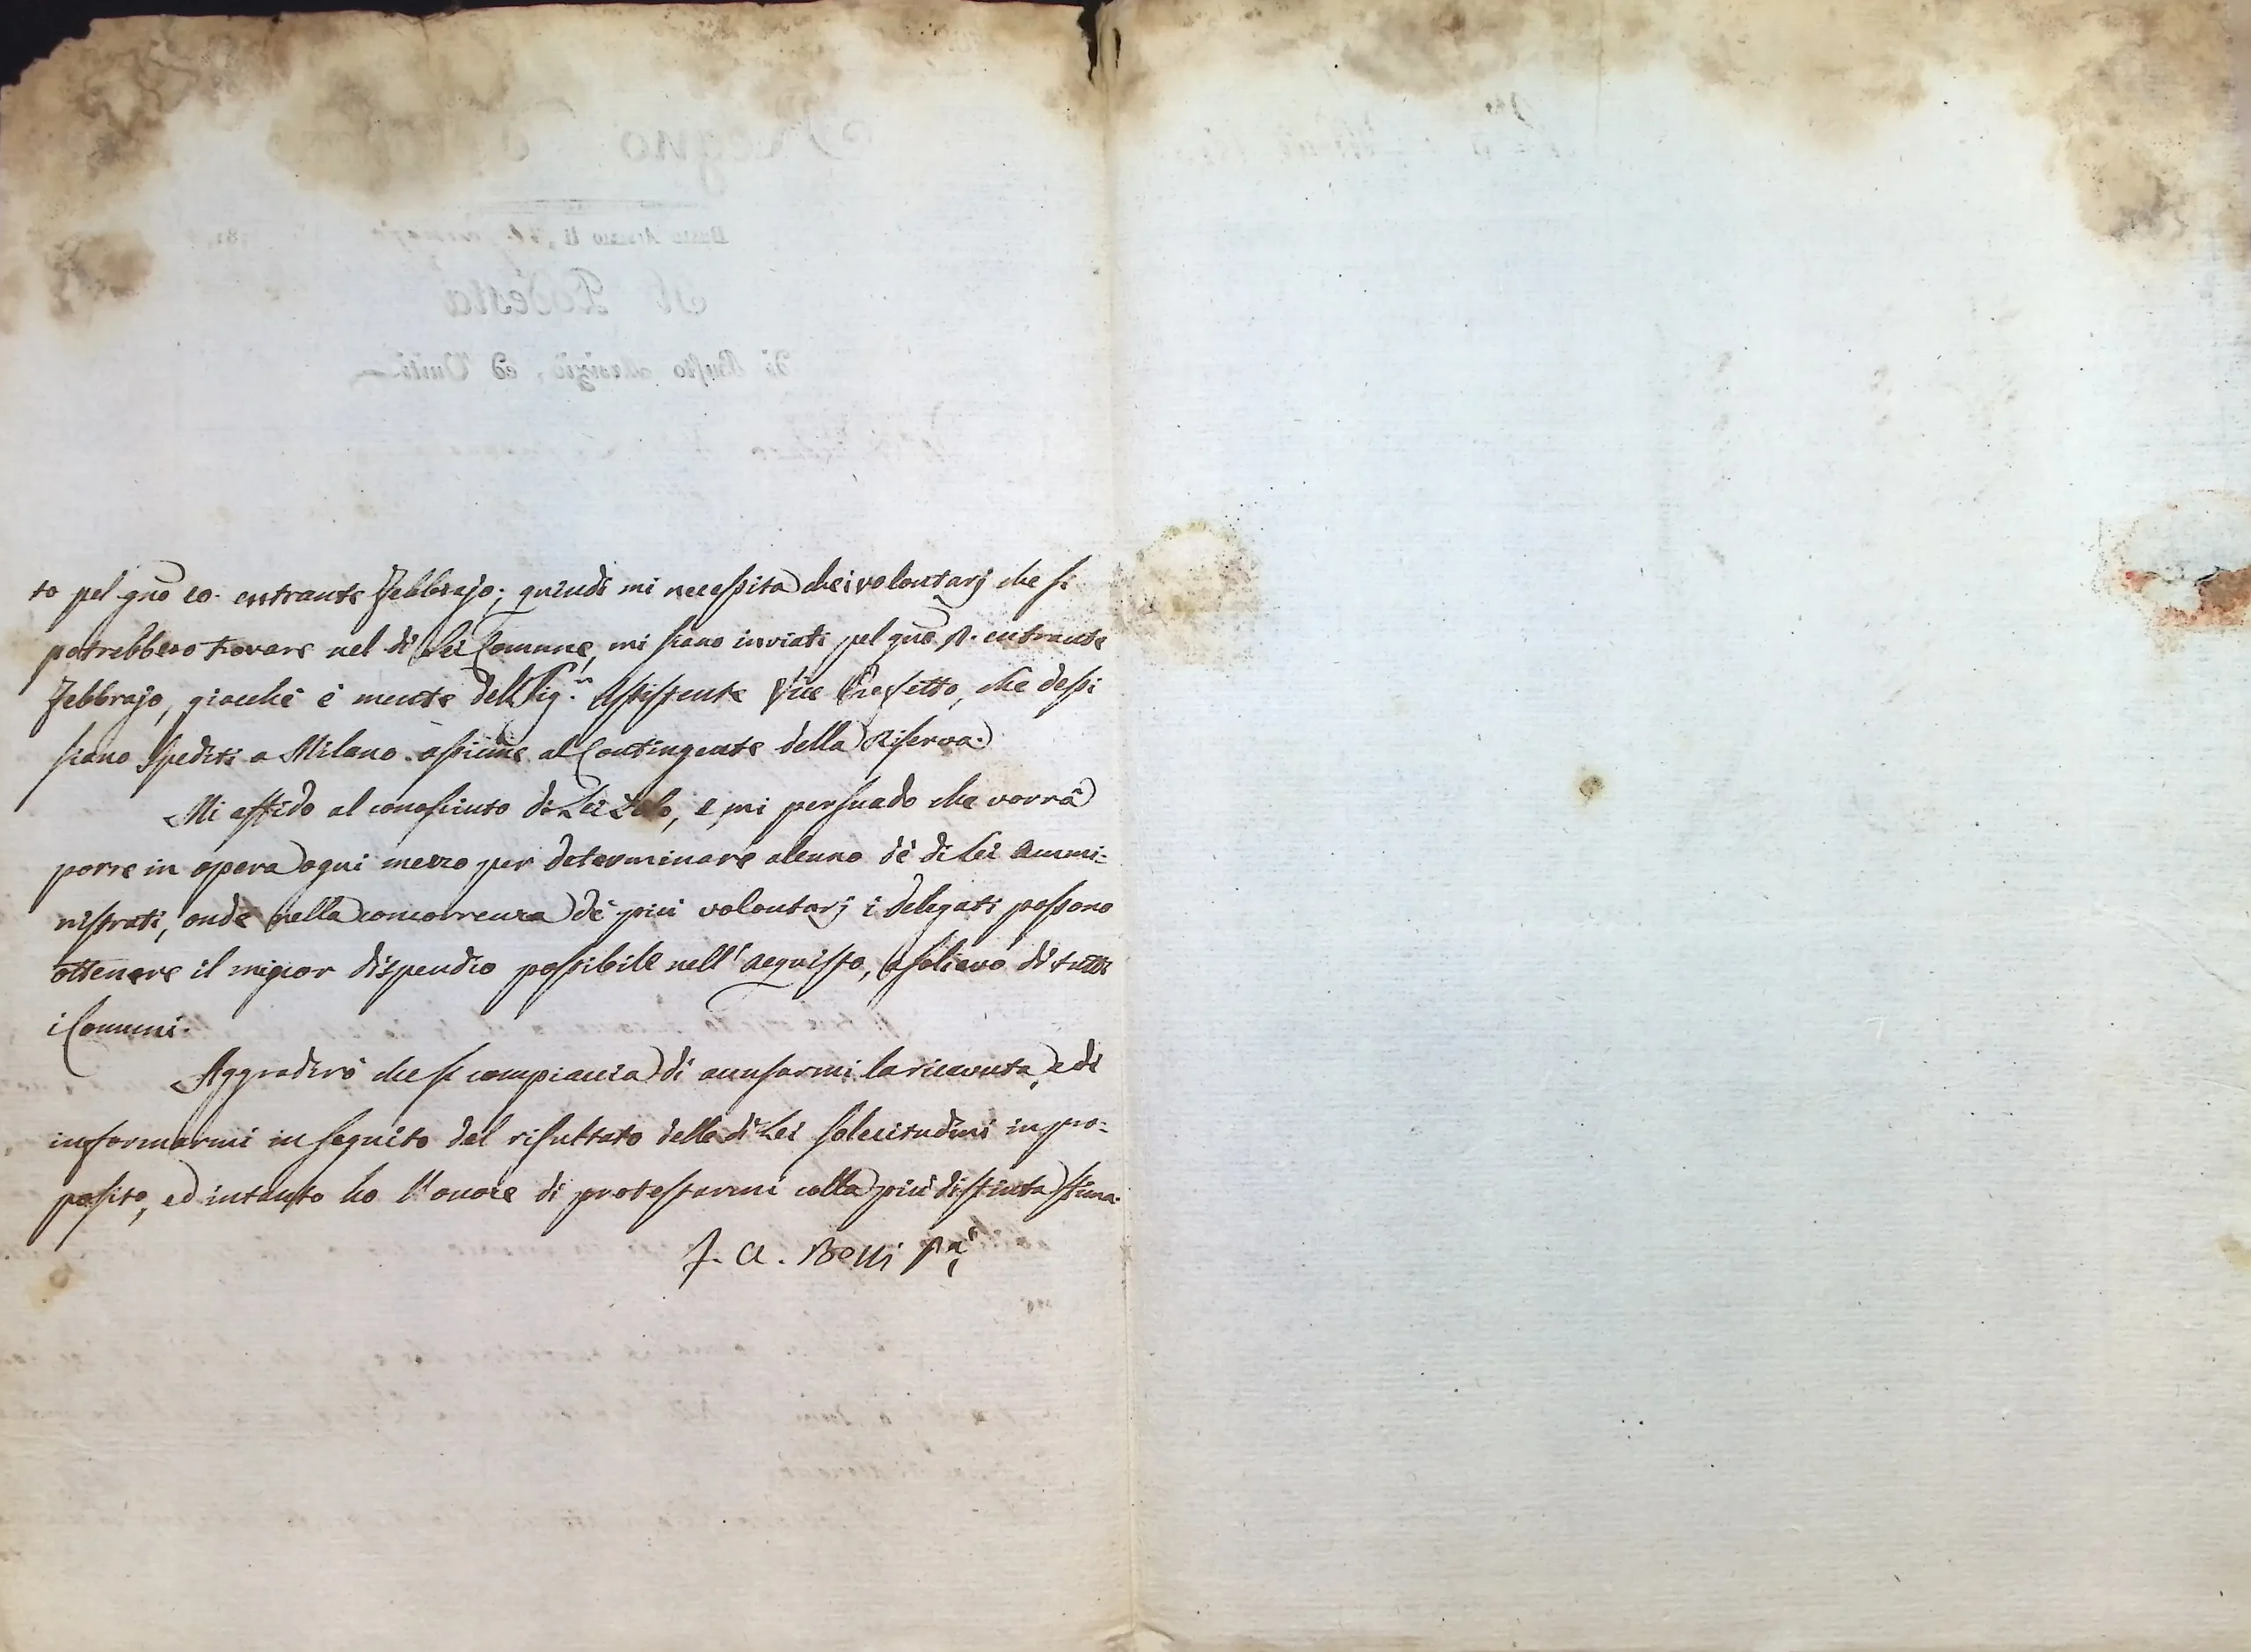 to pel gno 10. entrante Febbrajo; quindi mi necessita che i volontarj che si
potrebbero trovare nel di Lei Comune, mi siano inviati pel gno 8. entrante
Febbrajo, giacchè è mente del Sig.r Assistente Vice Prefetto, che dessi
siano spediti a Milano assieme al Contingente della Riserva.
Mi affido al conosciuto di Lei Zelo, e mi persuado che vorrà
porre in opera ogni mezzo per determinare alcuno dè di Lei Ammi=
nistrati, onde nella concorrenza dè più volontarj i delegati possono
ottenere il minor dispendio possibile nell' acquisto, a solievo di tutti
i Comuni.
Aggradirò che si compiaccia di accusarmi la ricevuta, e di
informarmi in seguito del risultato delle di Lei solecitudini in pro=
posito, ed intanto ho l'onore di protestarmi colla più distinta stima.
F. A. Belli
Regno
Busto Arsizio li
181
Il Podestà
di Busto Arsizio, ed Uniti